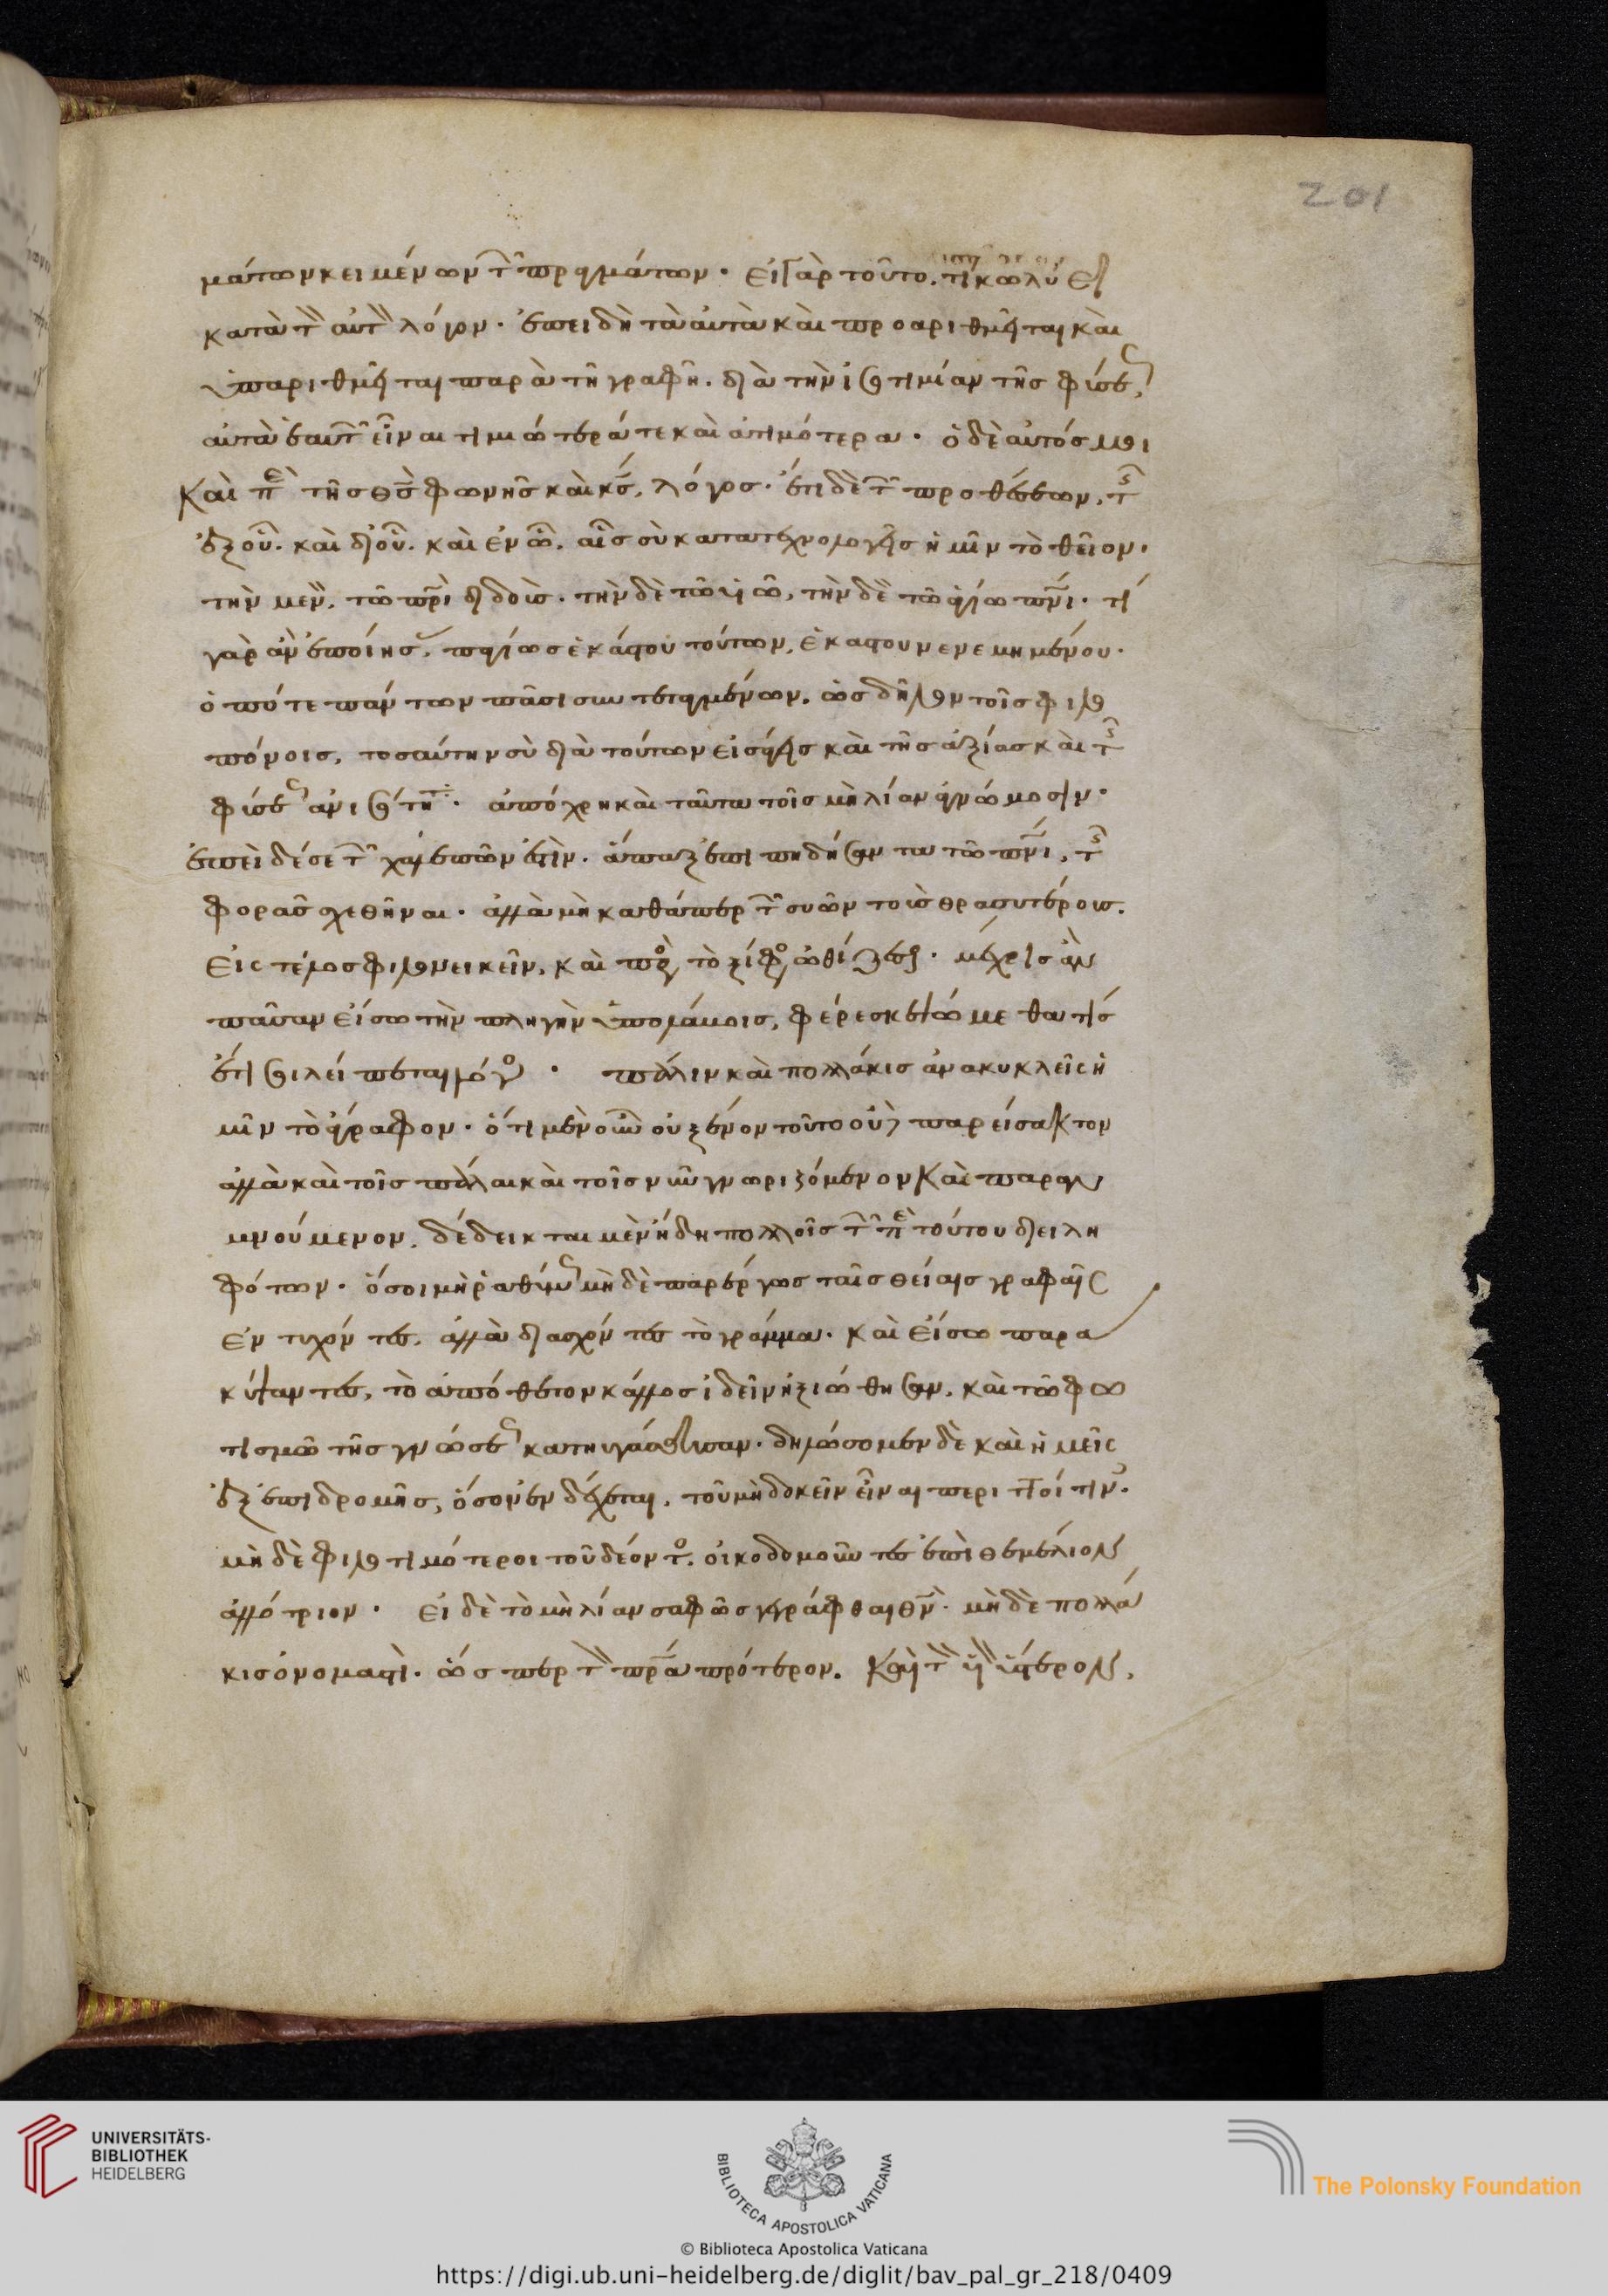 201
μάτων κειμένων τῶν πραγμάτων· εἰ γὰρ τοῦτο, τί κωλύει
κατὰ τὸν αὐτὸν λόγον· ἐπειδὴ τὰ αὐτὰ καὶ προαριθμεῖται καὶ
ὑπαριθμεῖται παρὰ τῇ γραφῇ. διὰ τὴν ἰσοτιμίαν τῆς φύσεως,
αὐτὰ ἑαυτῶν εἶναι τιμιώτερά τε καὶ ἀτιμότερα· ὁ δὲ αὐτός μοι
καὶ περὶ τῆς θς φωνῆς καὶ κς, λόγος· ἔτι δὲ τῶν προθέσεων, τῆς
ἐξ οὗ· καὶ δι' οὗ· καὶ ἐν ᾧ. αἷς σὺ κατατεχνολογεῖς ἡμῖν τὸ θεῖον·
τὴν μὲν, τῷ πρι διδοὺς· τὴν δὲ τῷ υἱῷ, τὴν δὲ τῷ ἁγίω πνι· τί
γὰρ ἂν ἐποίησας, παγίως ἑκάστου τούτων, ἑκάστου νενεμημένου·
ὁπότε πάντων πᾶσι συντεταγμένων, ὡς δῆλον τοῖς φιλο
πόνοις, τοσαύτην σὺ διὰ τούτων εἰσάγεις καὶ τῆς ἀξίας καὶ τῆς
φύσεως ἀνισότητα· ἀπόχρη καὶ ταῦτα τοῖς μὴ λίαν ἀγνώμοσιν·
ἐπεὶ δέ σε τῶν χαλεπῶν ἐστὶν· ἅπαξ ἐπιπηδήσαντα τῷ πνι, τῆς
φορᾶς σχεθῆναι· ἀλλὰ μὴ καθάπερ τῶν συῶν τοὺς θρασυτέρους.
εἰς τέλος φιλονεικεῖν, καὶ πρὸς τὸ ξίφος ὠθίζεσθαι· μέχρις ἂν
πᾶσαν εἴσω τὴν πληγὴν ὑπολάβοις, φέρε σκεψώμεθα τίς
ἔτι σοι λείπεται λόγος · πάλιν καὶ πολλάκις ἀνακυκλεῖς ἡ
μῖν τὸ ἄγραφον· ὅτι μὲν οὖν οὐ ξένον τοῦτο οὐδὲ παρείσακτον
ἀλλὰ καὶ τοῖς πάλαι καὶ τοῖς νῦν γνωριζόμενον καὶ παραγυ
μνούμενον, δέδεικται μὲν ἤδη πολλοῖς τῶν περὶ τούτου διειλη
φότων· ὅσοι μὴ ῥαθύμως μηδὲ παρέργως ταῖς θείαις γραφαῖς
ἐντυχόντες, ἀλλὰ διασχόντες τὸ γράμμα· καὶ εἴσω παρα
κύψαντες, τὸ ἀπόθετον κάλλος ἰδεῖν ἠξιώθησαν, καὶ τῷ φω
τισμῷ τῆς γνώσεως κατηυγάσθησαν· δηλώσομεν δὲ καὶ ἡμεῖς
ἐξ ἐπιδρομῆς, ὅσον ἐνδέχεται, τοῦ μὴ δοκεῖν εἶναι περιττοί τινες·
μηδὲ φιλοτιμότεροι τοῦ δέοντος. οἰκοδομοῦντες ἐπὶ θεμέλιον
ἀλλότριον · εἰ δὲ τὸ μὴ λίαν σαφῶς γεγράφθαι θν· μὴ δὲ πολλά
κις ὀνομαστὶ· ὥσπερ τὸν πρα πρότερον. καὶ τὸν υἱὸν ὕστερον,
UNIVERSITÄTS-
BIBLIOTHEK
HEIDELBERG
BIBLIOTECA APOSTOLICA VATICANA
© Biblioteca Apostolica Vaticana
The Polonsky Foundation
https://digi.ub.uni-heidelberg.de/diglit/bav_pal_gr_218/0409